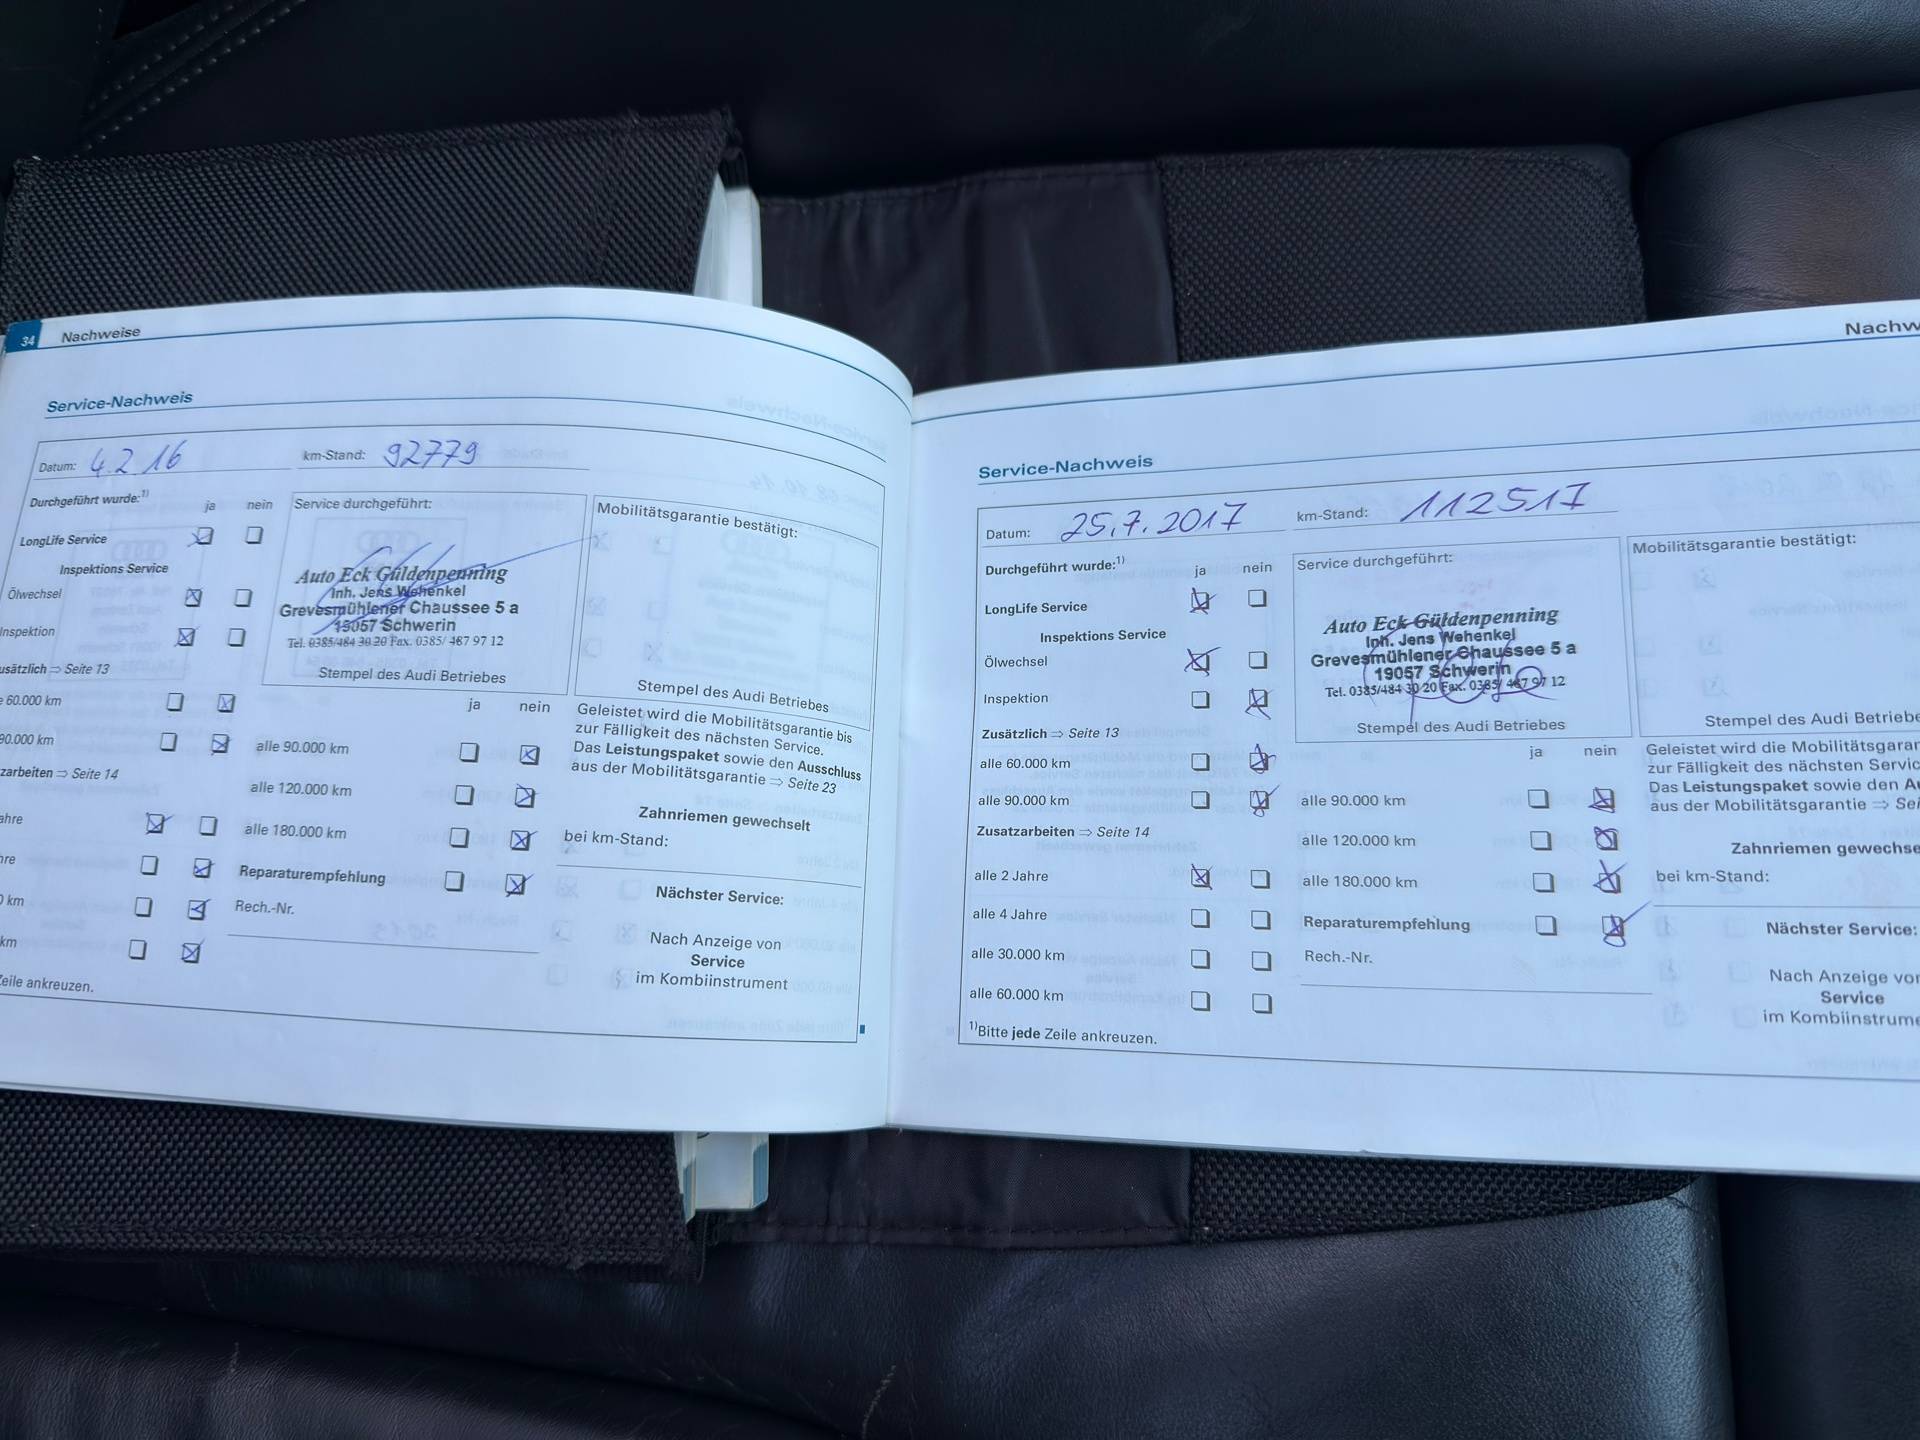 34 Nachweise
Service-Nachweis
Datum: 4.2.16 km-Stand: 92779
Durchgeführt wurde:1) ja nein
LongLife Service
Inspektions Service
Ölwechsel
Inspektion
Seite 13
60.000 km
90.000 km
⇒ Seite 14
km
km
ankreuzen.
Service durchgeführt:
Auto Eck Güldenpenning
Inh. Jens Wehenkel
Grevesmühlener Chaussee 5 a
19057 Schwerin
Tel. 0385/484 30 20 Fax. 0385/ 487 97 12
Stempel des Audi Betriebes
ja nein
alle 90.000 km
alle 120.000 km
alle 180.000 km
Reparaturempfehlung
Rech.-Nr.
Mobilitätsgarantie bestätigt:
Stempel des Audi Betriebes
Geleistet wird die Mobilitätsgarantie bis
zur Fälligkeit des nächsten Service.
Das Leistungspaket sowie den Ausschluss
aus der Mobilitätsgarantie ⇒ Seite 23
Zahnriemen gewechselt
bei km-Stand:
Nächster Service:
Nach Anzeige von
Service
im Kombiinstrument
Nachw
Service-Nachweis
Datum: 25.7.2017 km-Stand: 112517
Durchgeführt wurde:1) ja nein
LongLife Service
Inspektions Service
Ölwechsel
Inspektion
Zusätzlich ⇒ Seite 13
alle 60.000 km
alle 90.000 km
Zusatzarbeiten ⇒ Seite 14
alle 2 Jahre
alle 4 Jahre
alle 30.000 km
alle 60.000 km
1)Bitte jede Zeile ankreuzen.
Service durchgeführt:
Auto Eck Güldenpenning
Inh. Jens Wehenkel
Grevesmühlener Chaussee 5 a
19057 Schwerin
Tel. 0385/484 30 20 Fax. 0385/ 487 97 12
Stempel des Audi Betriebes
ja nein
alle 90.000 km
alle 120.000 km
alle 180.000 km
Reparaturempfehlung
Rech.-Nr.
Mobilitätsgarantie bestätigt:
Stempel des Audi Betriebe
Geleistet wird die Mobilitätsgaran
zur Fälligkeit des nächsten Servic
Das Leistungspaket sowie den Au
aus der Mobilitätsgarantie ⇒ Sei
Zahnriemen gewechse
bei km-Stand:
Nächster Service:
Nach Anzeige vor
Service
im Kombiinstrume